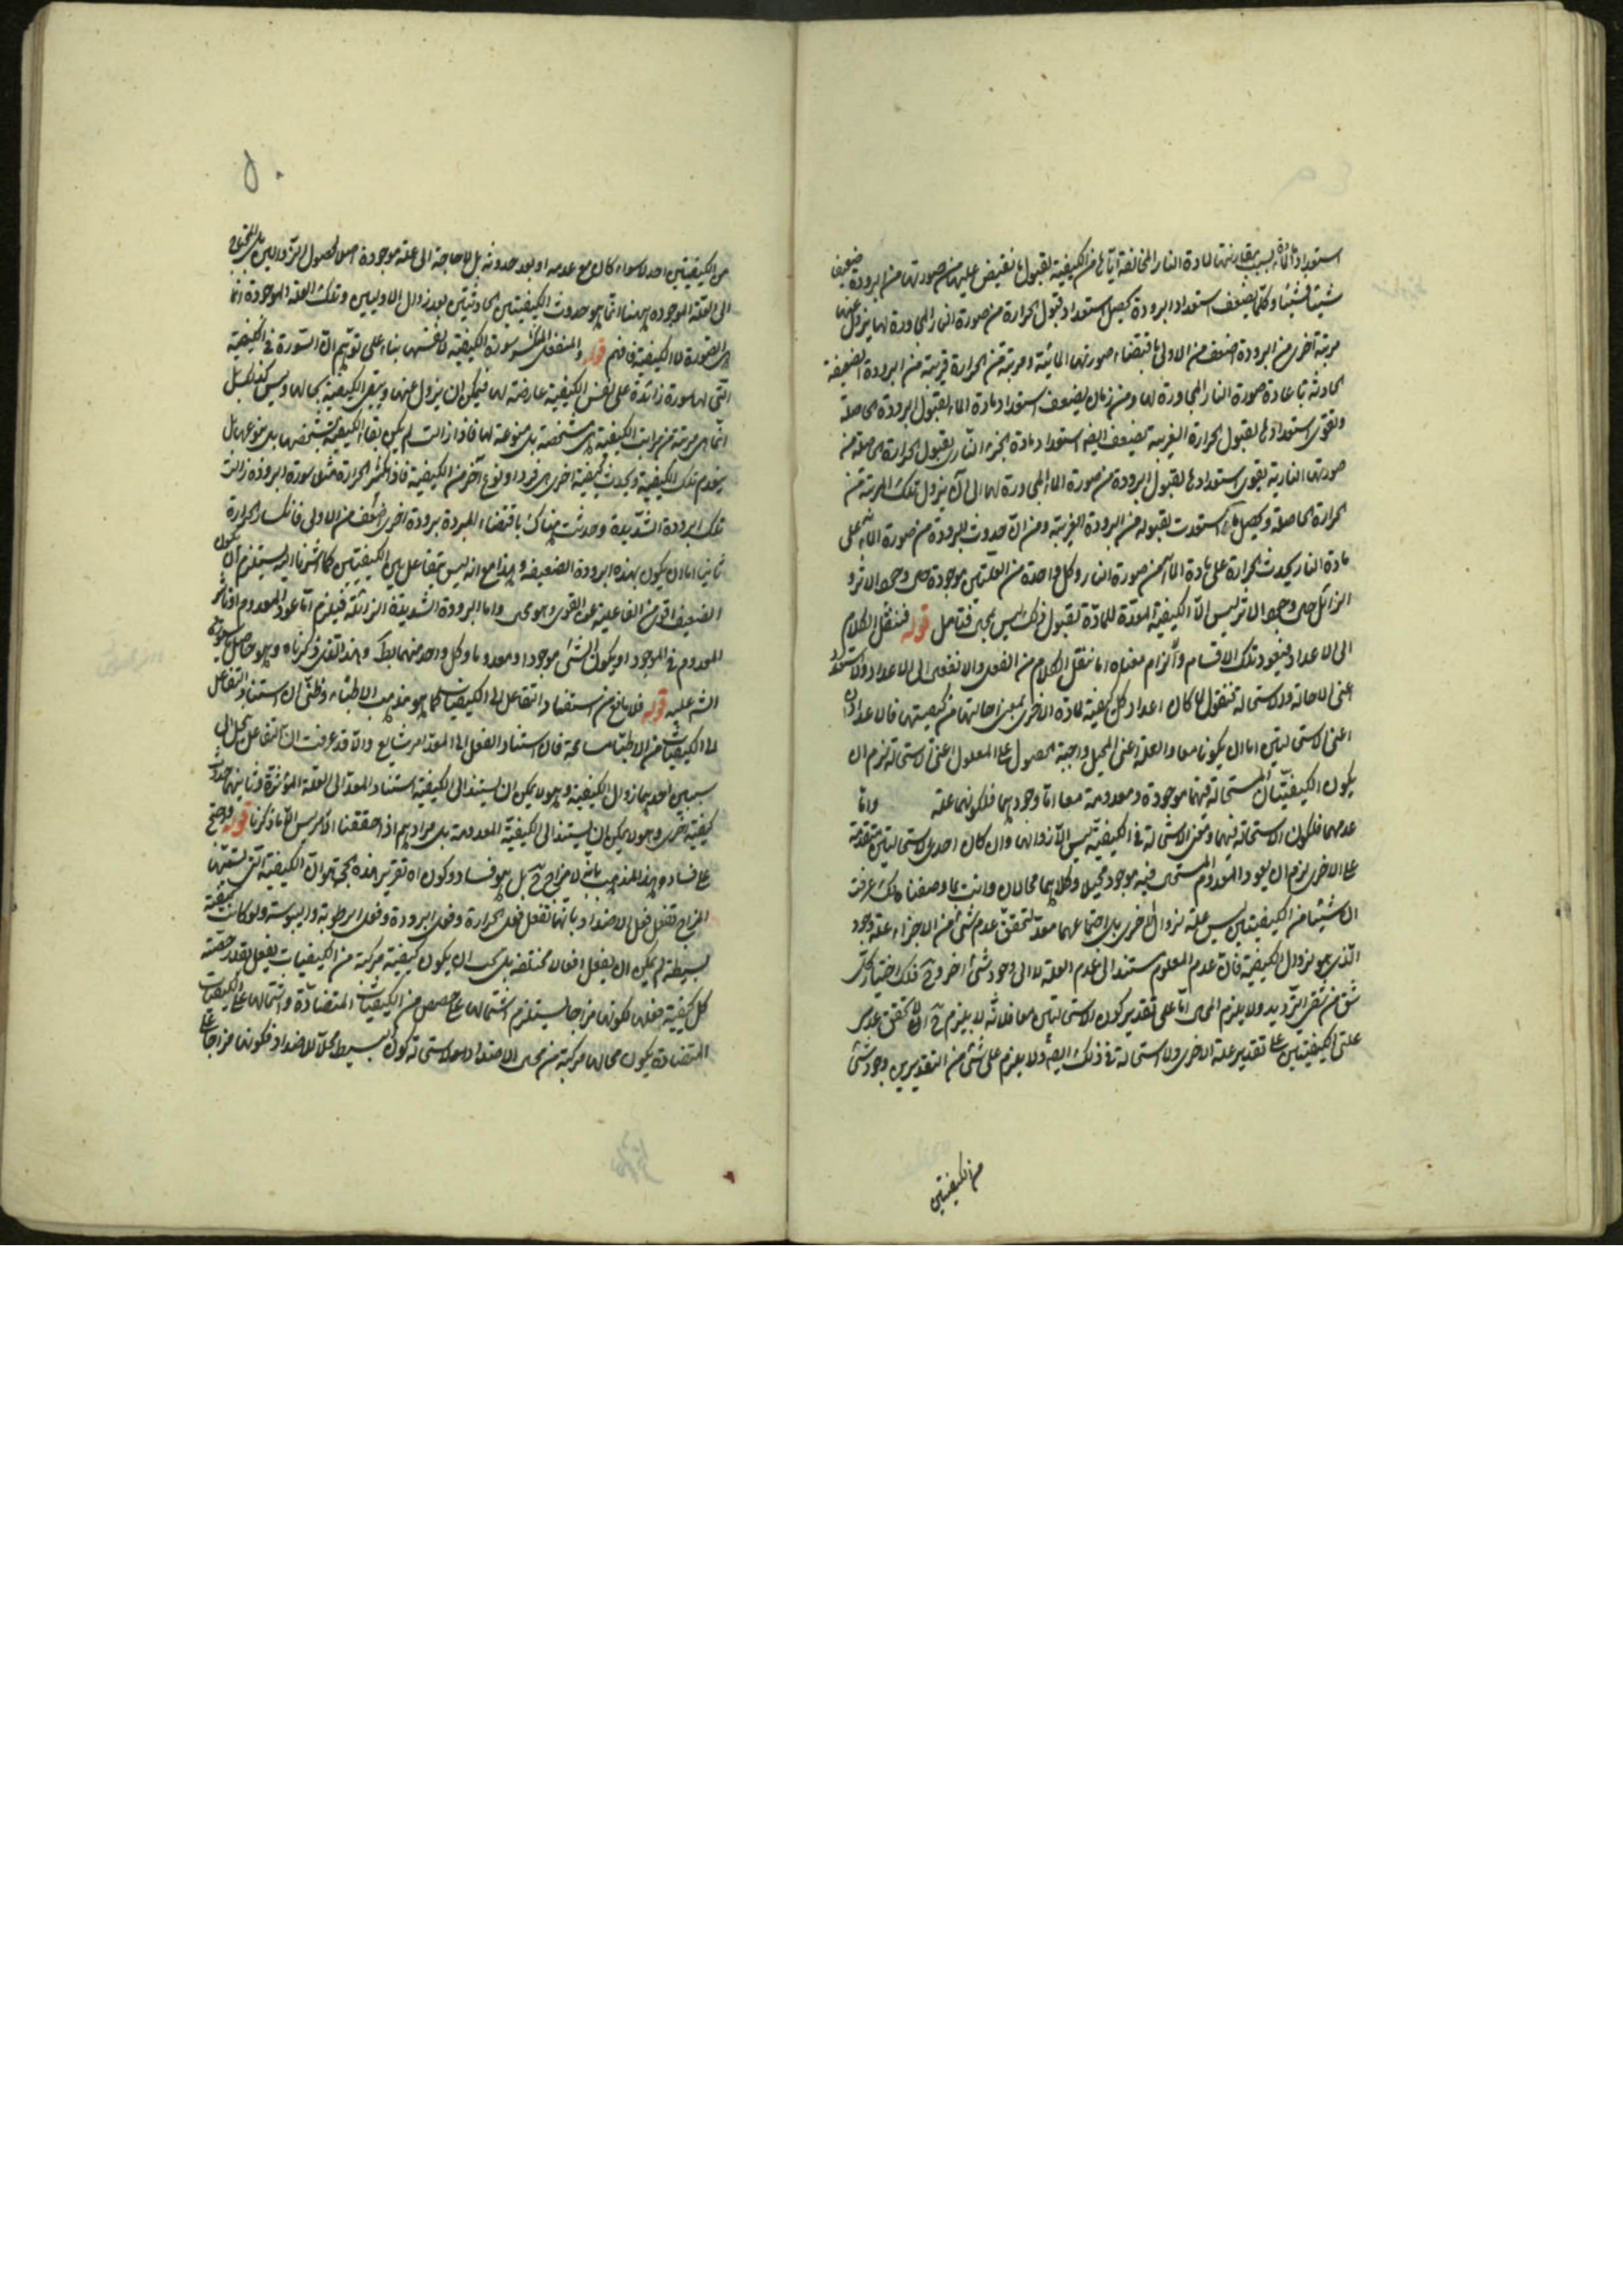 استعداد مادة بسبب مقارنتها لمادة النار المخالفة اياها في الكيفية لقبول ما تفيض عليها من صورتها من البرودة ضعيفا
شيئا فشيئا وكلما يضعف استعداد البرودة يحصل استعداد قبول الحرارة من صورة النار المجاورة لها يزول عنها
مرتبة اخرى من البرودة اضعف من الاولى باقتضاء صورتها المائية ومرتبة من الحرارة قريبة من البرودة الضعيفة
الحادثة باعادة صورة النار المجاورة لها ومن زمان يضعف استعداد مادة الماء لقبول البرودة الحاصلة
وتقوى استعدادها لقبول الحرارة الغريبة يضعف ايضا استعداد مادة الجزء الناري لقبول الحرارة الحاصلة من
صورتها النارية يقوى استعدادها لقبول البرودة من صورة الماء المجاورة لها الى ان يزول تلك المرتبة من
الحرارة الحاصلة ويحصل ما استعدت لقبوله من البرودة الغريبة ومن ان حدوث البرودة من صورة الماء على
مادة النار يحدث الحرارة على مادة الماء من صورة النار وكل واحدة من العلتين موجودة حين وجود الاثر و
الزائل حين وجود الاثر ليس الا الكيفية المعدة للمادة لقبول ذلك ليس بمحال فتامل قوله فننقل الكلام
الى الاعداد فيعود تلك الاقسام والزام معناه انا ننقل الكلام من الفعل والانفعال الى الاعداد والاستعداد
اعنى الاحالة والاستحالة فنقول لما كان اعداد كل كيفية لمادة الاخرى بمعنى احالتها من كيفيتها فالاعدادان
اعنى الاستحالتين اما ان يكونا معا والعلة اعنى المحيل واجبة الحصول مع المعلول اعنى الاستحالة لزم ان
يكون الكيفيتان المستحالة فيهما موجودة ومعدومة معا اما وجودهما فلكونهما علة واما
عدمهما فلكون الاستحالة فيهما ومعنى الاستحالة في الكيفية ليس الا زوالها وان كان احدى الاستحالتين متقدمة
على الاخرى لزم ان يعود المعدوم المستحيل فيه موجود محيلا وكلاهما محالان وانت بما وصفنا لك عرفت
ان شيئا من الكيفيتين ليس علة لزوال الاخرى بل اجتماعهما معد لتحقق عدم شئ من الاجزاء علة وجود
الذي هو لزوال الكيفية فان عدم المعلوم مستند الى عدم العلة لا الى وجود شئ اخر وح فلك اختيار كل
شق من شقى الترديد ولا يلزم المحال اما على تقدير كون الاستحالتين معا فلانه لا يلزم ح الا تحقق عدمى
علتى الكيفيتين على تقدير علة الاخرى ولا استحالة في ذلك ايضا ولا يلزم على شئ من التقديرين وجود شئ
من الكيفيتين
٥٠
من الكيفيتين احد لا سواء كان مع عدمه او بعد حدوثه بل لا حاجة الى علة موجودة اصلا لحصول الزوالين بل المحتاج
الى العلة الموجودة ههنا انما هو حدوث الكيفيتين الحادثتين بعد زوال الاوليين وتلك العلة الموجودة انما
هي الصورة لا الكيفية فافهم قوله والمنفعل المنكسر سورة الكيفية لا نفسها بناء على توهم ان السورة في الكيفية
التى لها سورة زائدة على نفس الكيفية عارضة لها فيمكن ان يزول عنها ويبقى الكيفية بحالها وليس كذلك بل
انما هي مرتبة من مراتب الكيفية هي مشخصة بل منوعة لها فاذا زالت لم يكن بقاء الكيفية بشخصها بل بنوعها بل
ينعدم تلك الكيفية ويحدث كيفية اخرى هي فرد او نوع آخر من الكيفية فاذا كسر الحرارة مثلا سورة البرودة زالت
تلك البرودة الشديدة وحدثت هناك باقتضاء المبردة برودة اخرى اضعف من الاولى فانكسار الحرارة
ثانيا اما ان يكون بهذه البرودة الضعيفة وهذا مع انه ليس بتفاعل بين الكيفيتين كما اشرنا اليه يستلزم ان يكون
الضعيف اقوى من الفاعلية عن القوى وهو محال واما البرودة الشديدة الزائلة فيلزم اما عود المعدوم او تاثير
المعدوم في الموجود او يكون الشئ موجودا ومعدوما وكل واحد منهما باطل وهذا الذى ذكرناه وهو حاصل
الشه عليه قوله فلا مانع من استناد التفاعل الى الكيفيات كما هو مذهب الاطباء وظنى ان استناد التفاعل
الى الكيفيات من الاطباء مسامحة فان استناد الفعل الى المعد امر شايع والا قد عرفت ان التفاعل يحل الى
سببين احدهما زوال الكيفية وهو لا يمكن ان يستند الى الكيفية استناد المعد الى العلة المؤثرة وثانيهما حدوث
كيفية اخرى وهو لا يمكن ان يستند الى الكيفية المعدومة بل مرادهم اذا حققنا الامر ليس الا ما ذكرنا قوله واحتج
على فساد هذا المذهب بانه لا مزاج ح بل هو فساد وكون اه تقرير هذه الحجة هو ان الكيفية التى يستتبعها
المزاج تفعل فعل الاضداد بانها تفعل فعل الحرارة وفعل البرودة وفعل الرطوبة واليبوسة ولو كانت كيفية
بسيطة لم يمكن ان يفعل افعالا مختلفة بل يجب ان يكون كيفية مركبة من الكيفيات يفعل بقدر حصة
كل كيفية فعلها لكونها مزاجا يستلزم اشتمالها على حصص من الكيفيات المتضادة واشتمالها على الكيفيات
المتضادة يكون محالها مركبة من محال الاضداد والاستحالة كون البسيط محلا للاضداد فكونها مزاجا